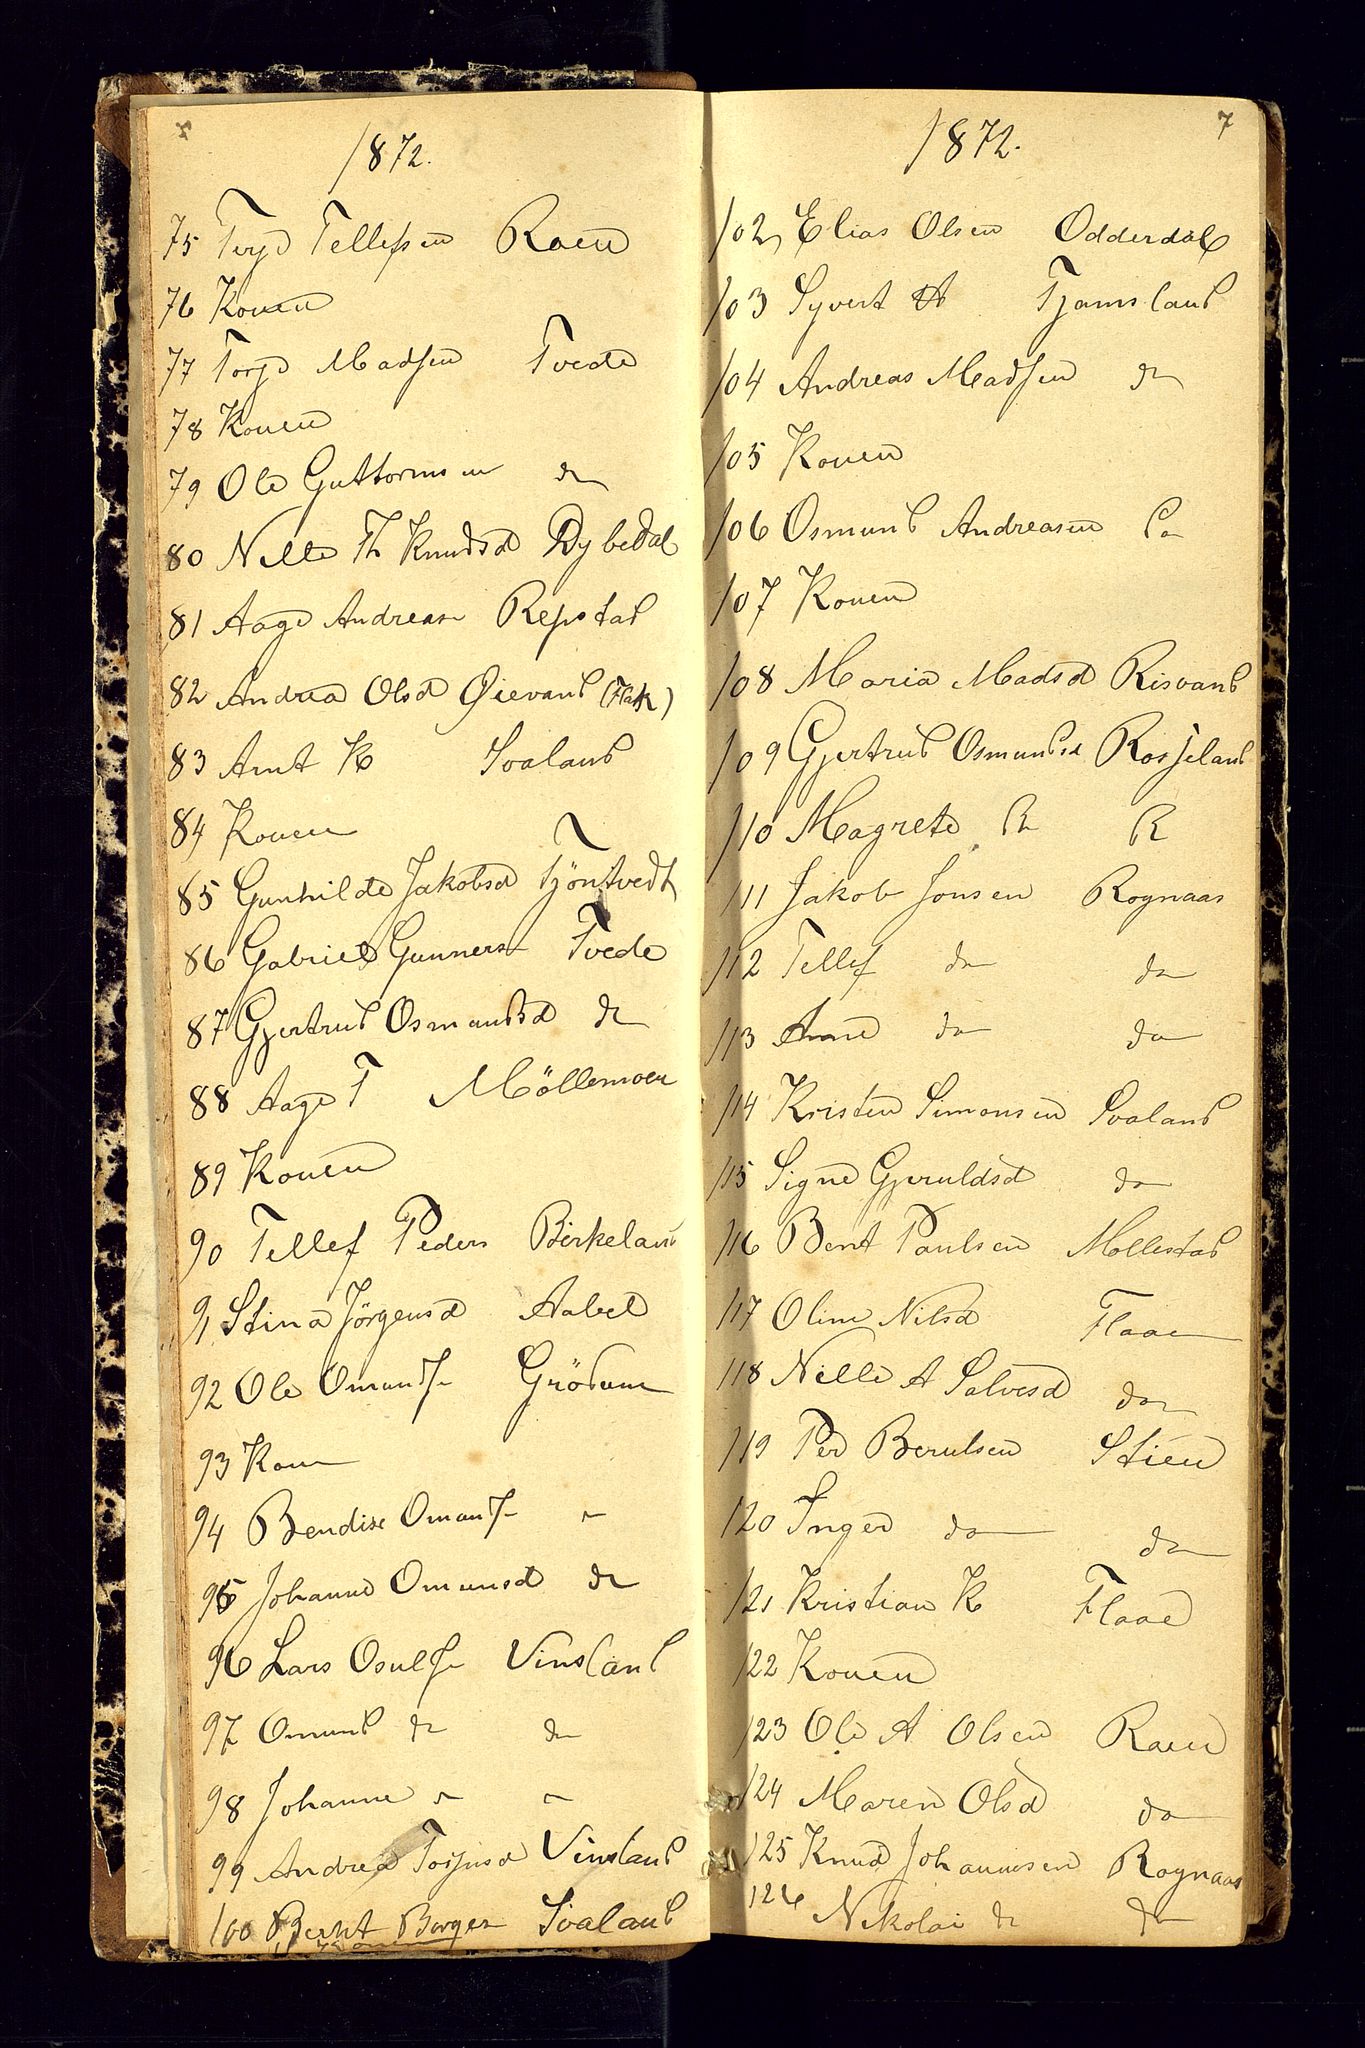 1872.
75 Terje Tellefsen Raen
76 Konen
77 Torje Madsen Tvede
78 Konen
79 Ole Guttormsen do
80 Nille Th Knudsd Dybedal
81 Aage Andreasn Repstad
82 Andrea Olsd Øievand (Flak)
83 Arnt K Svaland
84 Konen
85 Gunhilde Jakobsd Tjöntvedt
86 Gabriel Gunnersn Tvede
87 Gjertrud Osmundsd do
88 Aage T Möllemoen
89 Konen
90 Tellef Peders Birkeland
91 Stina Jörgensd Aabel
92 Ole Omundsn Grödum
93 Kon
94 Bendixe Omundsn "
95 Johanne Omunsd do
96 Lars Osulfsn Vinsland
97 Omund do do
98 Johanne " "
99 Andrea Torjusd Vinsland
100 Bernt Borger Svaland
11 Konen
7
1872.
102, Elias Olsen Odderdal
103 Syvert A Tjamsland
104 Andreas Madsen do
105 Konen
106 Osmund Andreasen do
107 Konen
108 Maria Madsd Risvand
109 Gjertrud Osmundsd Rosjeland
110 Magrete R R
111 Jakob Jonsen Rognaas
112 Tellef do do
113 Anne do do
114 Kristen Simonsen Svaland
115 Signe Gjeruldsd do
116 Bent Paulsen Mollestad
117 Oline Nilsd Flaae
118 Nille A Salvesd do
119 Per Berulsen Stien
120 Inger do do
121 Kristian K Flaae
122 Konen
123 Ole A Olsen Raen
124 Maren Olsd do
125 Knud Johannesen Rognaas
126 Nikolai do do